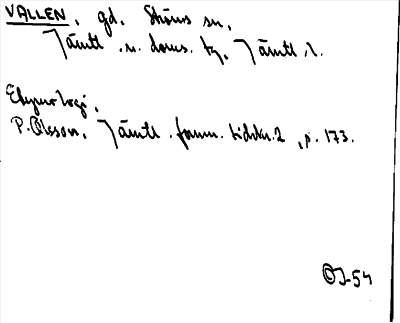 VALLEN, gd, Ströms sn,
Jämtl. n. doms. tg, Jämtl. l.
Etymologi,
P. Olsson, Jämtl. fornm. tidskr. 2, p. 173.
OJ-54